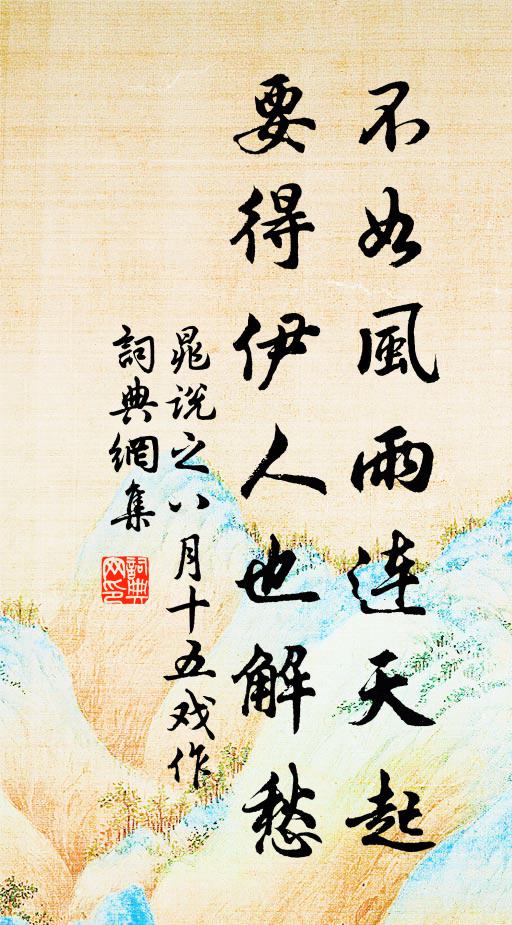 不如風雨连天起
要得伊人也解愁
晁说之八月十五戏作
詞典網集
詞典
网印